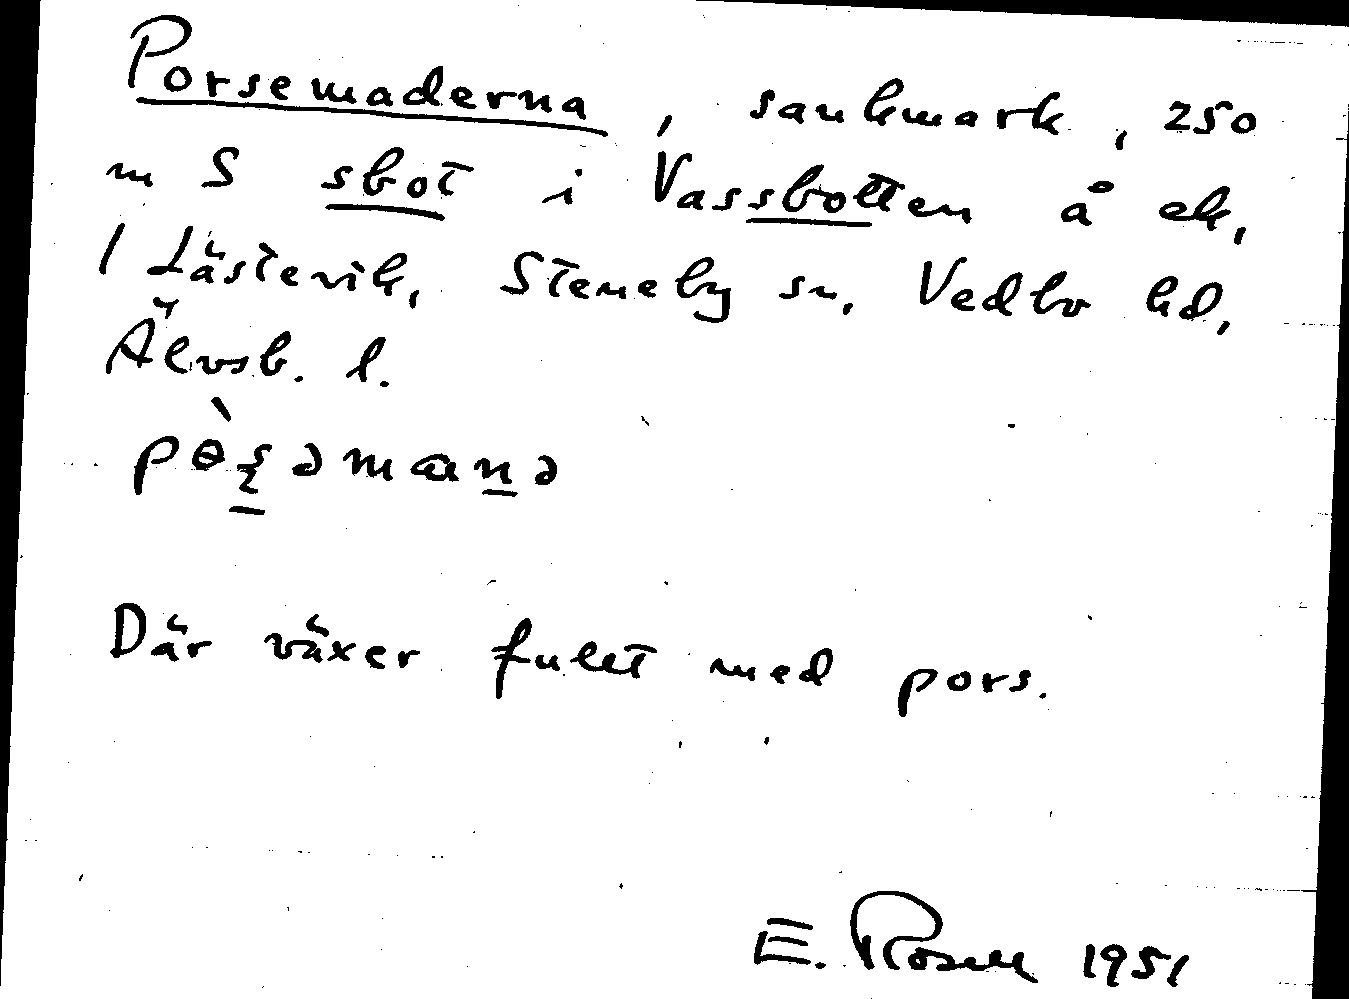 Porsemaderna, sankmark, 250
m S sbot i Vassbotten å ek,
1 Lästevik, Steneby sn, Vedbo hd,
Älvsb. l.
Där växer fullt med pors.
E. Rosell 1951